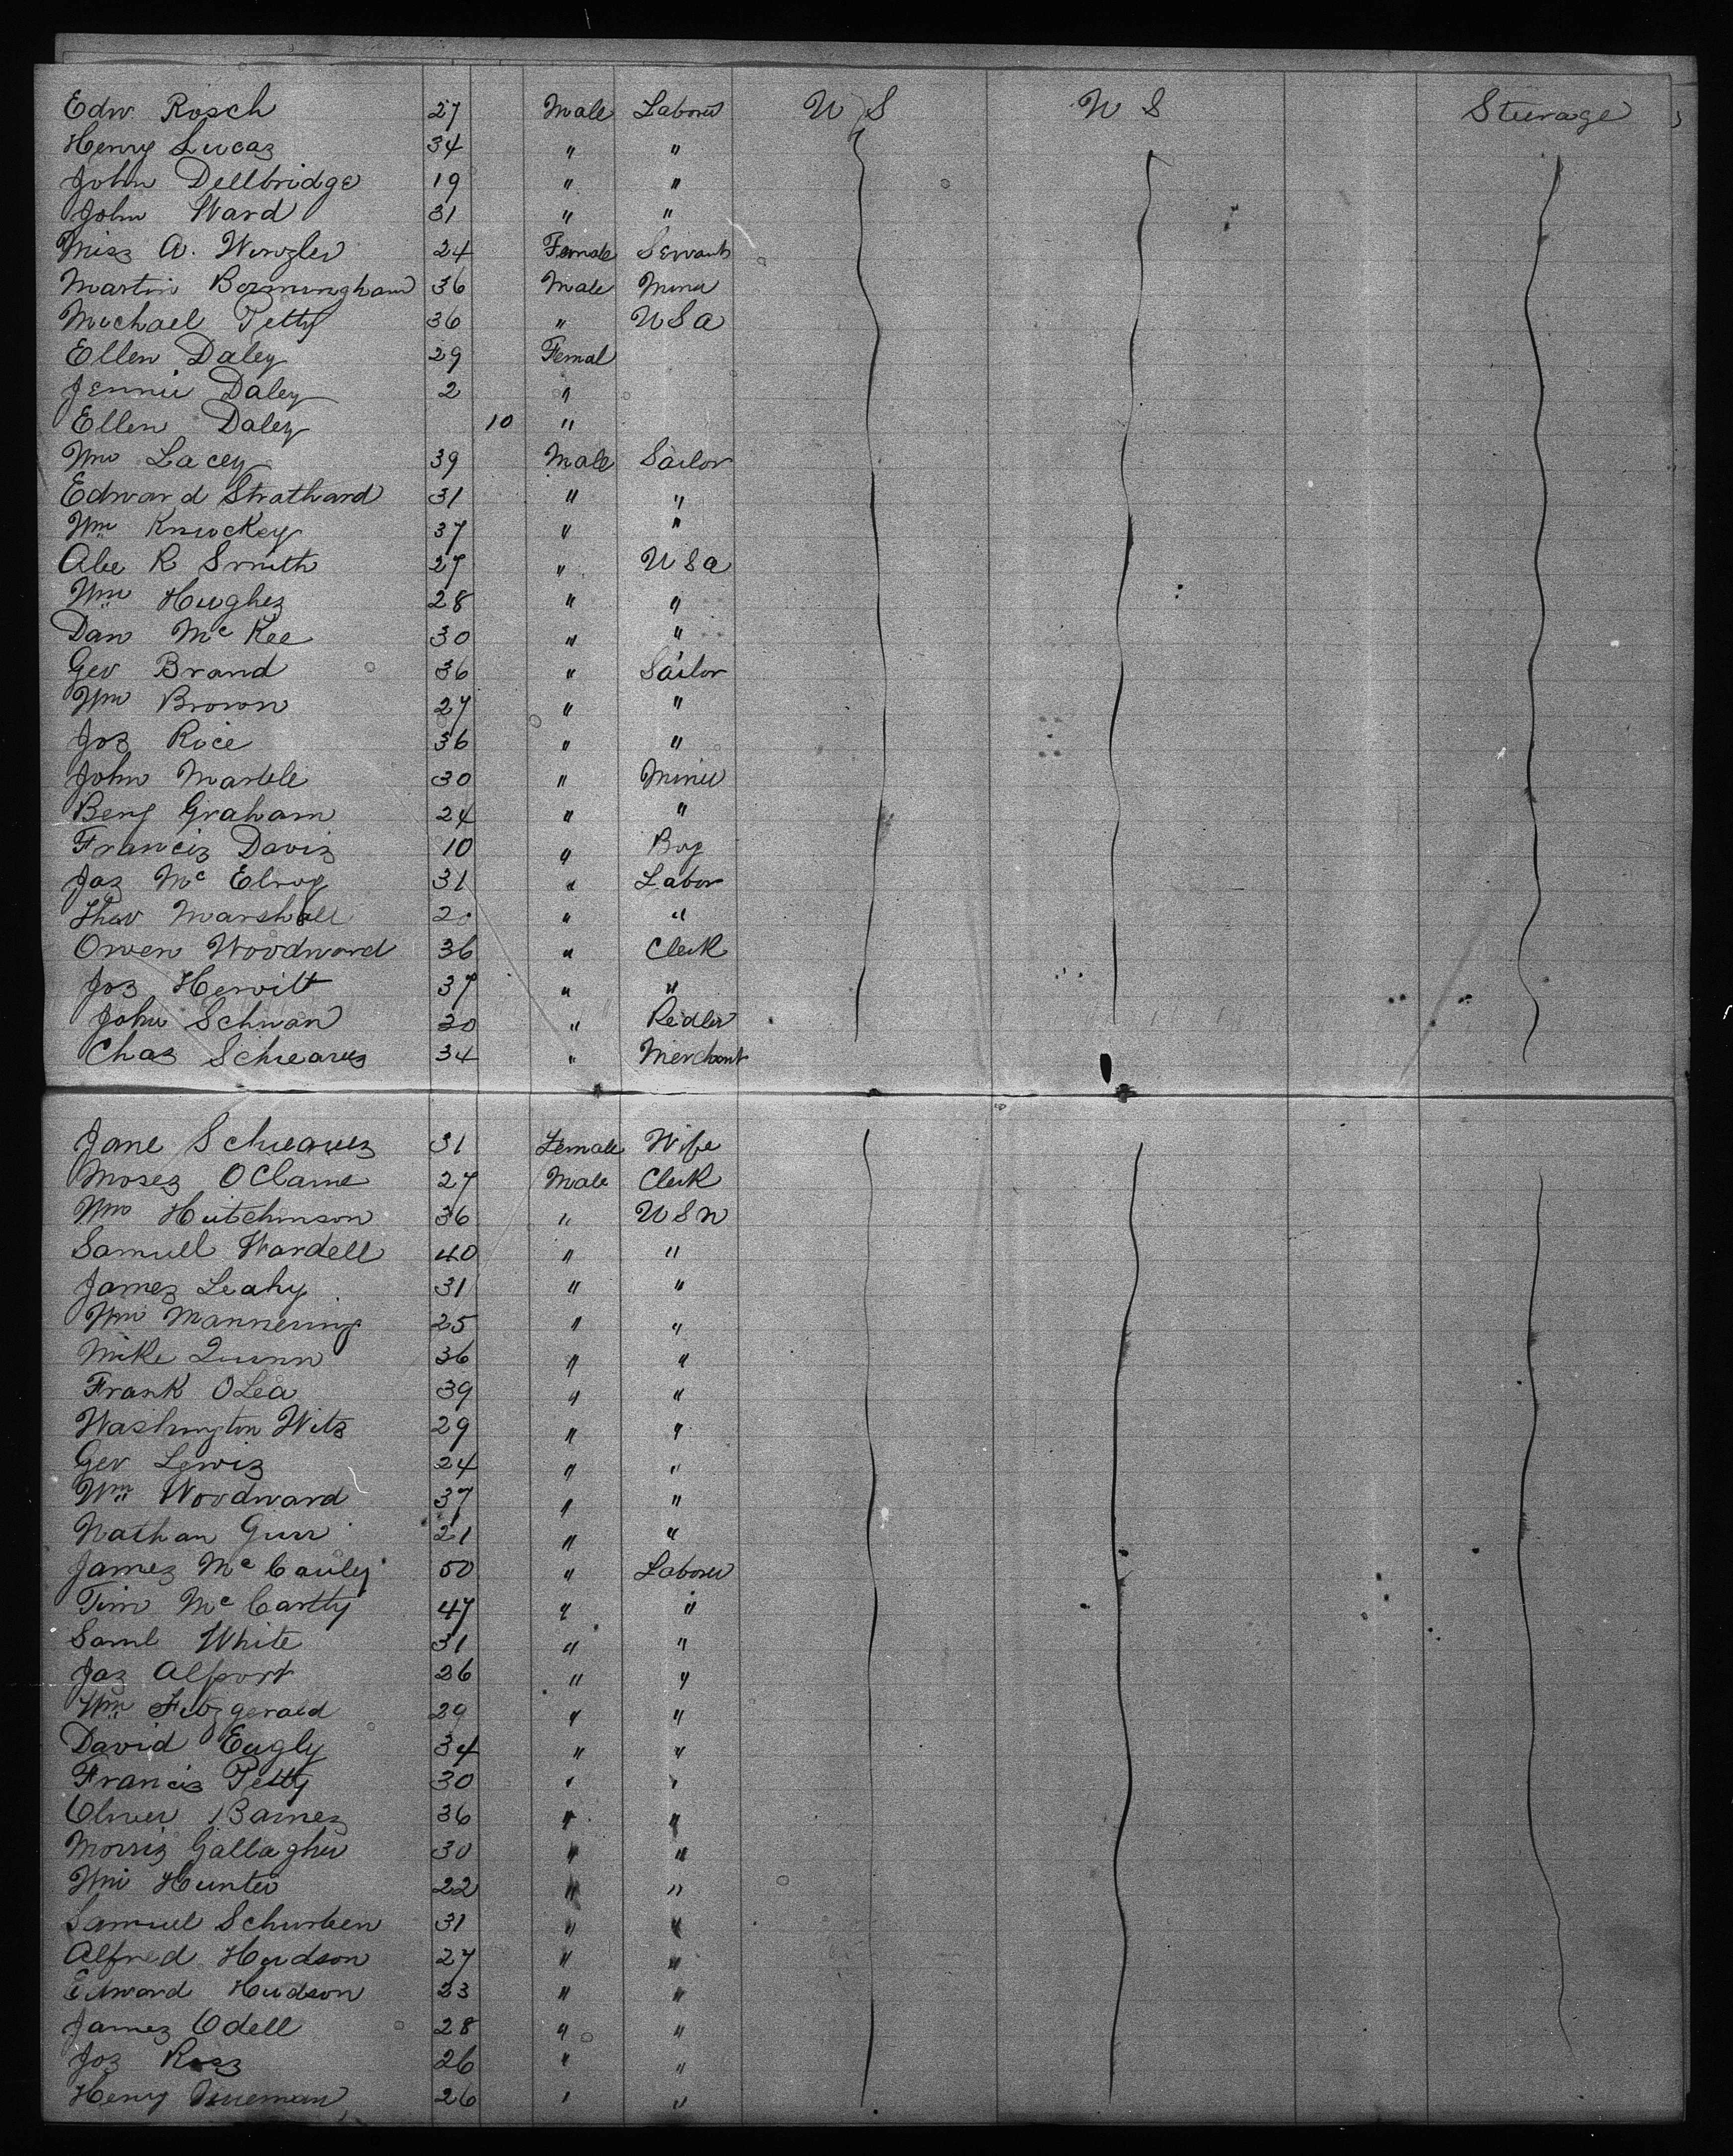 Edw Rosch 27 Male Laborer U S U S Steerage
Henry Lucas 34 " "
John Dellbridge 19 " "
John Ward 31 " "
Miss A. Winzler 24 Female Servant
Martin Bermingham 36 Male Miner
Michael Petty 36 " USA
Ellen Daley 29 Femal
Jennie Daley 2 "
Ellen Daley 10 "
Wm Lacey 39 Male Sailor
Edward Strathard 31 " "
Wm Knuckey 37 " "
Abe R Smith 27 " USA
Wm Hughes 28 " "
Dan McKee 30 " "
Geo Brand 36 " Sailor
Wm Brown 27 " "
Jos Rice 36 " "
John Marble 30 " Miner
Benj Graham 24 " "
Francis Davis 10 " Boy
Jas McElroy 31 " Labor
Theo Marshall " "
Owen Woodward 36 " Clerk
Jos Hewitt 37 " "
John Schwan 30 " Pedler
Chas Schwarz 34 " Merchant
Jane Schwarz 31 Female Wife
Moses OClame 27 Male Clerk
Wm Hutchinson 36 " USN
Samuel Wardell 40 " "
James Leahy 31 " "
Wm Mannering 25 " "
Mike Quinn 36 " "
Frank OLea 39 " "
Washington Wits 29 " "
Geo Lewis 24 " "
Wm Woodward 37 " "
Nathan Gurr 21 " "
James McCauley 50 " Laborer
Tim McCartty 47 " "
Saml White 31 " "
Jas Alport 26 " "
Wm Fitzgerald 29 " "
David Eagly 34 " "
Francis Petty 30 " "
Oliver Barnes 36 " "
Morris Gallagher 30 " "
Wm Hunter 22 " "
Samuel Schurteen 31 " "
Alfred Hudson 27 " "
Edward Hudson 23 " "
James Odell 28 " "
Jos Ross 26 " "
Henry Nueman 26 " "